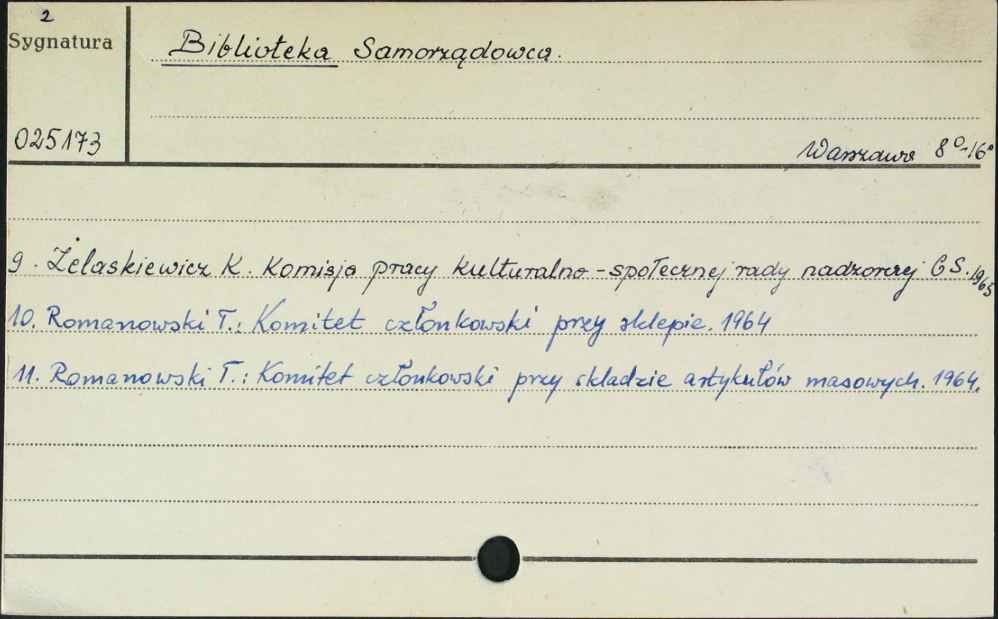 2
Sygnatura
Biblioteka Samorządowca.
025173
Warszawa 8°-16°
9. Żelaskiewicz K. Komisja pracy kulturalno-społecznej rady nadzorczej GS. 1965
10. Romanowski T.: Komitet członkowski przy sklepie. 1964
11. Romanowski T.: Komitet członkowski przy składzie artykułów masowych. 1964.